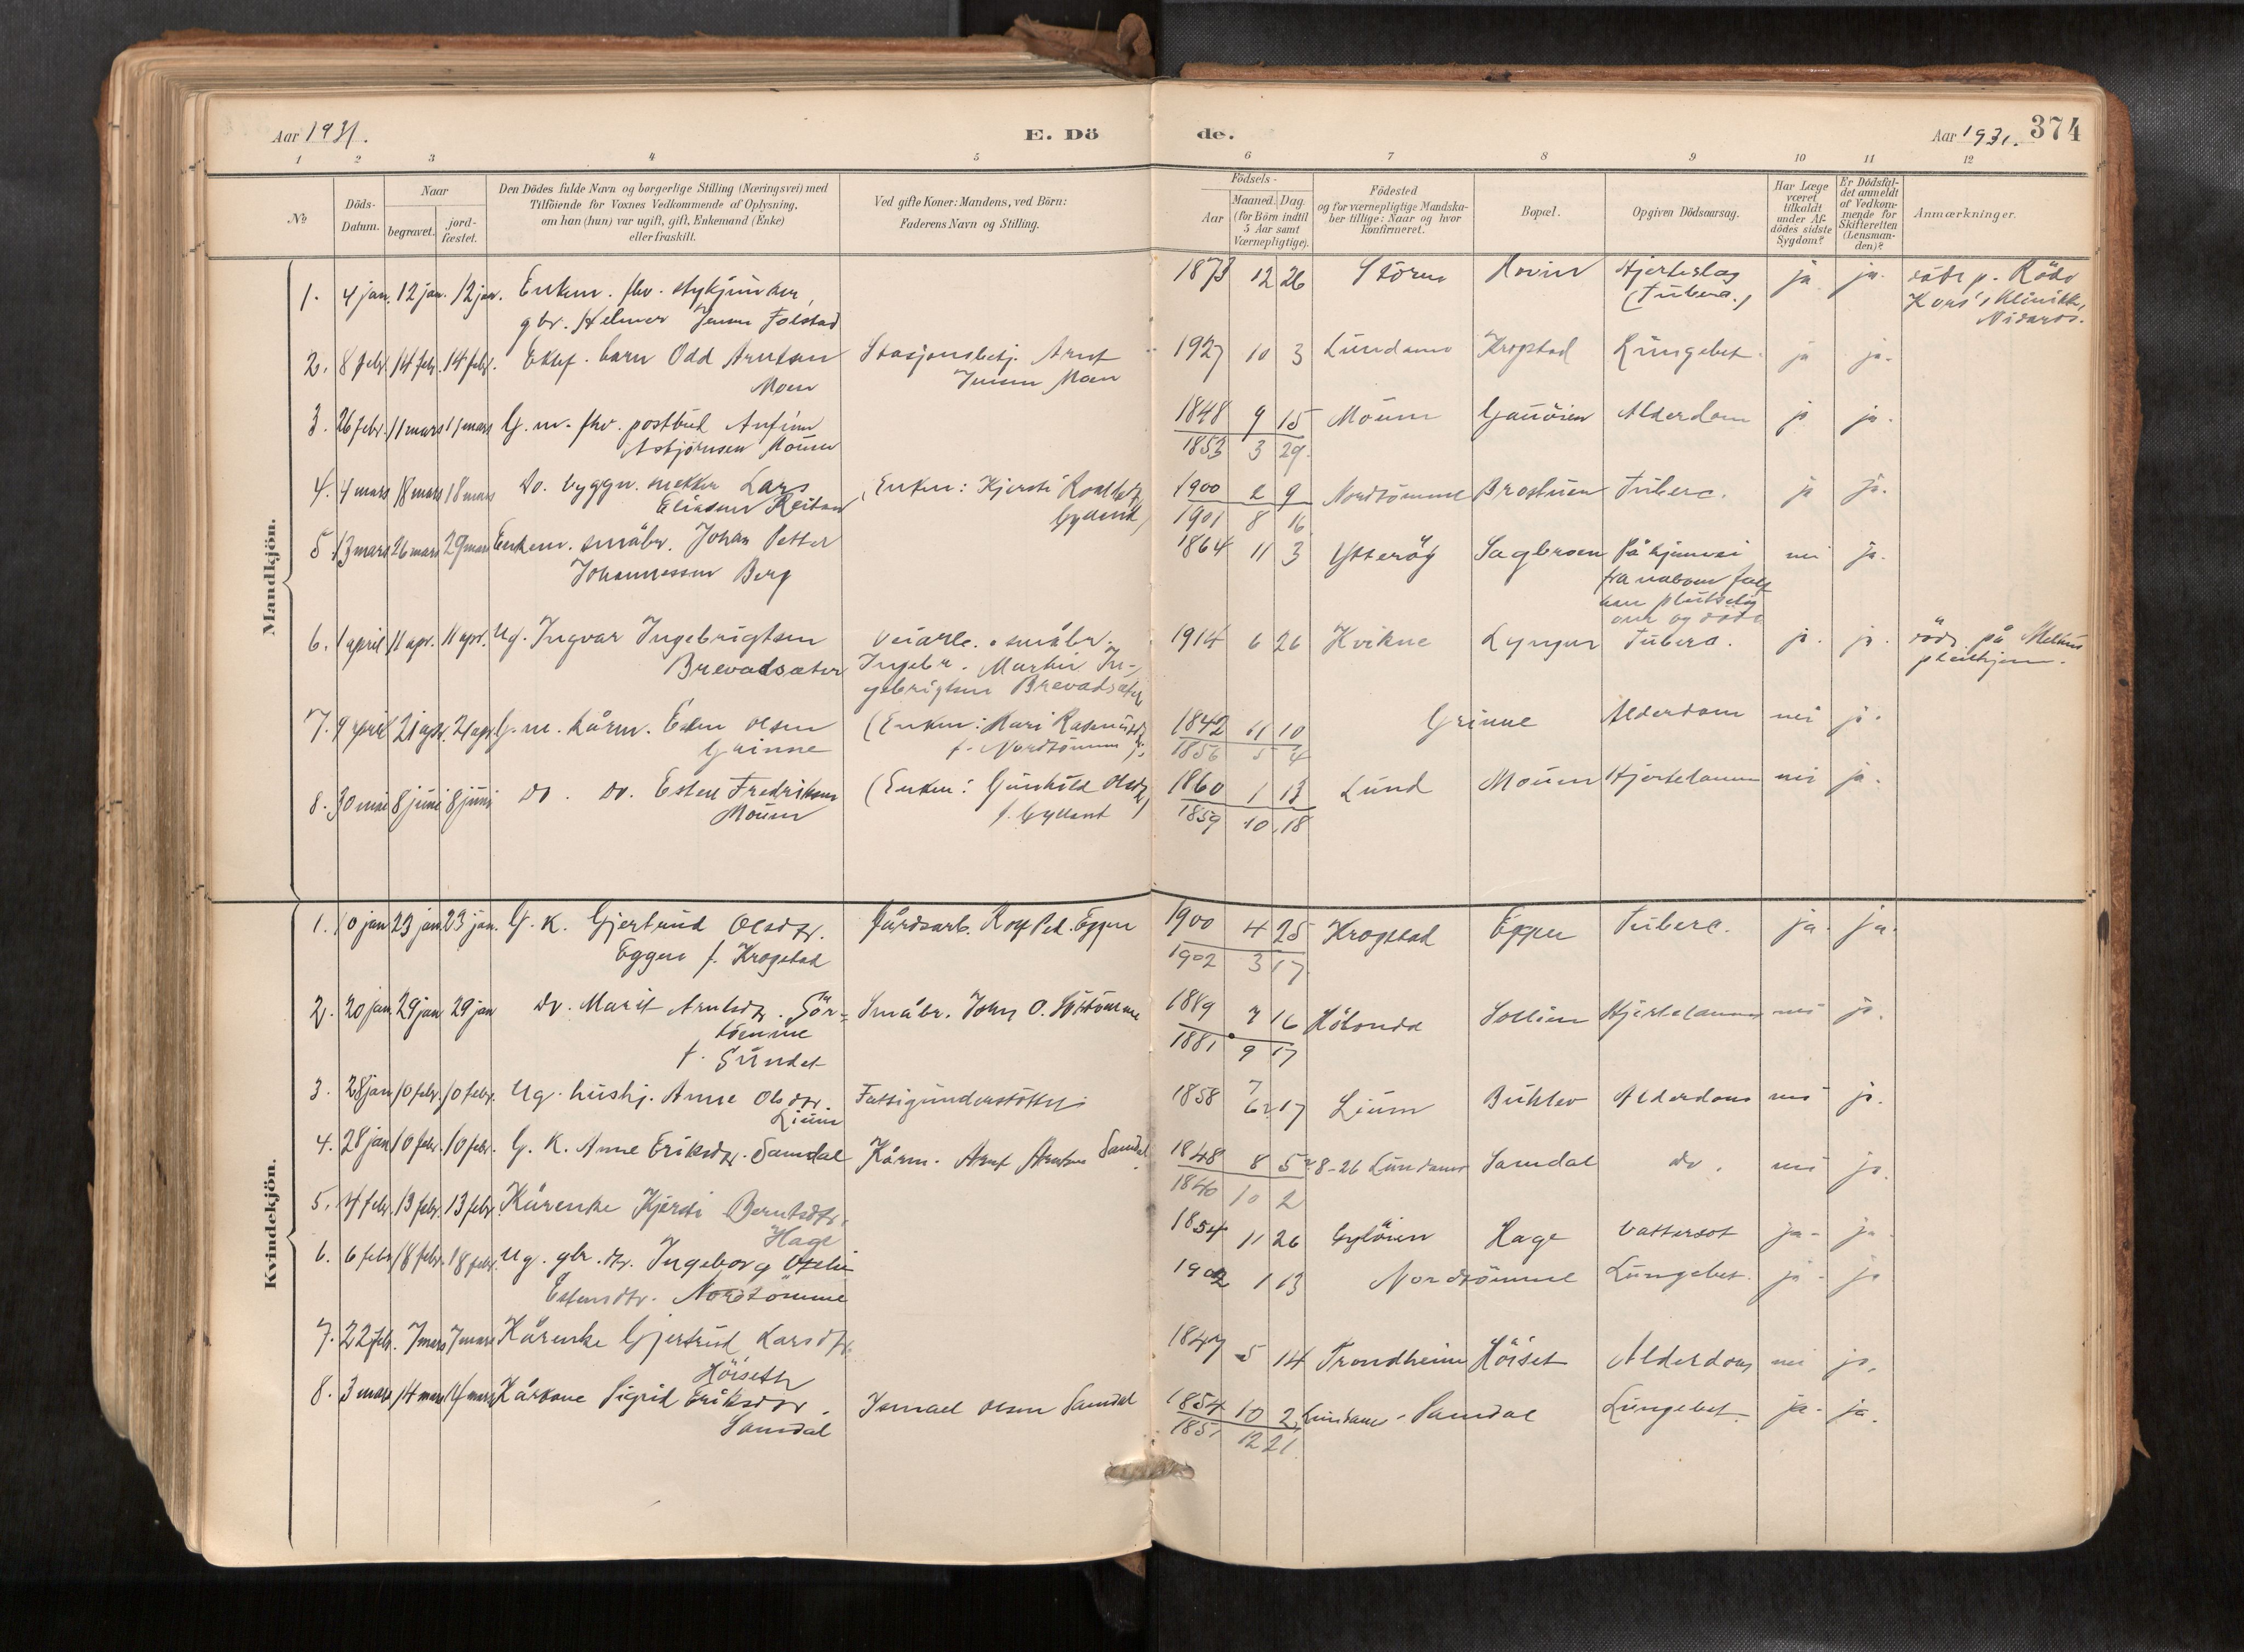 Aar 1931.
E. Dö
de.
Aar 1931.
374
1 2 3 4 5 6 7 8 9 10 11 12
No
Döds-Datum.
Naar
begravet.
jord-fæstet.
Den Dödes fulde Navn og borgerlige Stilling (Næringsvei) med
Tilföiende for Voxnes Vedkommende af Oplysning,
om han (hun) var ugift, gift, Enkemand (Enke)
eller fraskilt.
Ved gifte Koner: Mandens, ved Börn:
Faderens Navn og Stilling.
Födsels-
Aar
Maaned. Dag
(for Börn indtil
5 Aar samt
Værnepligtige).
Födested
og for værnepligtige Mandska-
ber tillige: Naar og hvor
konfirmeret.
Bopæl.
Opgiven Dödsaarsag.
Har Læge
været
tilkaldt
under Af-
dödes sidste
Sygdom?
Er Dödsfal-
det anmeldt
af Vedkom-
mende for
Skifteretten
(Lensman-
den)?
Anmærkninger.
Mandkjön.
1. 4 jan. 12 jan. 12 jan. Enkem. fhv. 1873 12 26 Støren Hovin Hjerteslag ja ja. døde p. Röde
gbr. Helmer Jensen Folstad (Tuberc.) Kors's Klinikk,
Nidaros.
2. 8 febr. 14 febr. 14 febr. Ektef. barn Odd Arntsen Stasjonsbetj. Arnt 1927 10 3 Lundamo Krogstad Lungebet. ja ja.
Moen Jensen Moen
3. 26 febr. 11 mars 11 mars G. m. fhv. postbud Anfinn 1848 9 15 Moum Gauöien Alderdom ja ja.
Asbjørnsen Moum 1853 3 29.
4. 4 mars 18 mars 18 mars Do. byggn. snekker Lars (Enken: Kjersti 1900 2 9 Nordtömme Brostuen Tuberc. ja ja.
Eliasen Reitan 1901 8 16
5. 13 mars 26 mars 29 mars Enkem. småbr. Johan Petter 1864 11 3 Ytteröy Sagbroen På hjemvei nei ja.
Johannessen Berg fra naboen falt
han plutselig
om og døde
6. 1 april 11 apr. 11 apr. Ug. Ingvar Ingebrigtsen Veiarb. o småbr. 1914 6 26 Kvikne Lyngen Tuberc. ja. ja. død på Melhus
Brevadsæter Ingebr. Martin In- pleiehjem.
gebrigtsen Brevadsæter
7. 9 april 21 apr. 21 apr. G. m. kårm. Esten Olsen (Enken: Mari Rasmusdtr. 1842 11 10 Grinne Alderdom nei ja.
Grinne f. Nordtömme). 1856 5 4
8. 30 mai 8 juni 8 juni do. do. Esten Fredriksen (Enken: Gunhild Olsdtr. 1860 1 13 Lund Moum Hjertelammelse nei ja.
Moum f. Gylland) 1859 10 18
Kvindekjön.
1. 10 jan 23 jan. 23 jan. G. K. Gjertrud Olsdtr. Gårdsarb. Rolf Ped. Eggen 1900 4 25 Krogstad Eggen Tuberc. ja. ja.
Eggen f. Krogstad 1902 3 17
2. 20 jan. 29 jan 29 jan do. Marit Arntsdtr. Sör- Småbr. John O. Sörtömme 1889 7 16 Hölonda Sollien Hjertelammelse nei ja.
tömme 1881 9 17
f. Gundet
3. 28 jan 10 febr. 10 febr. Ug. hushj. Anne Olsdtr. Fattigunderstöttet 1858 7 6 17 Lium Buhlev Alderdom nei ja.
Lium
4. 28 jan 10 febr. 10 febr. G. K. Anne Eriksdtr. Samdal Kårm. Arnt Arntsen Samdal 1848 8 5 8-26 Lundamo Samdal do. nei ja.
1840 10 2
5. 4 febr. 13 febr. 13 febr. Kårenke Kjersti Berntsdtr. 1854 11 26 Gylöien Hage Vattersot ja- ja
Hage
6. 6 febr. 18 febr. 18 febr. Ug. gbr. dtr. Ingeborg Otelie 1902 1 13 Nordtömme Lungebet. ja- ja
Estensdtr. Nordtömme
7. 22 feb. 7 mars 7 mars Kårenke Gjertrud Larsdtr. 1847 5 14 Trondheim Höiset Alderdom nei ja.
Höiseth
8. 3 mars 14 mars 14 mars Kårkone Sigrid Eriksdtr. Ismael Olsen Samdal 1854 10 2 Lundamo Samdal Lungebet. ja- ja.
Samdal 1851 12 21.